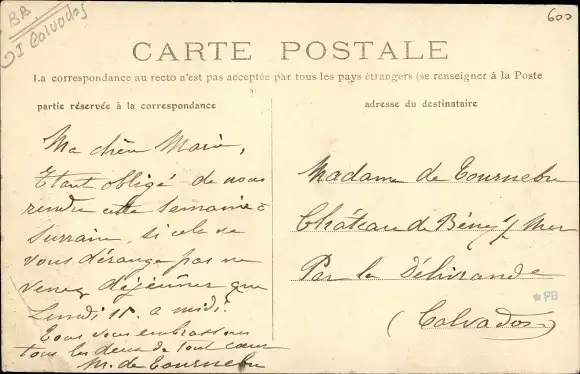 BB
DI Calvados
600
CARTE POSTALE
La correspondance au recto n'est pas acceptée par tous les pays étrangers (se renseigner à la Poste
partie réservée à la correspondance
adresse du destinataire
Ma chère Marie,
Etant obligé de nous
rendre cette semaine à
Surrain, si cela ne
vous dérange pas ne
venez déjeûner que
Lundi 15. à midi.
Tous vous embrassons
tous les deux de tout cœur
M. de Tournebu
Madame de Tournebu
Château de Bény s/ Mer
Par la Délivrande
(Calvados)
*PB